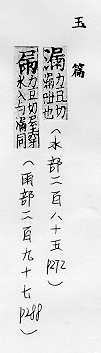 玉篇
漏
力豆切
漏也
（水部二百八十五 p272）
屚
力豆切屋穿
水入与漏同
（雨部二百九十七 p288）